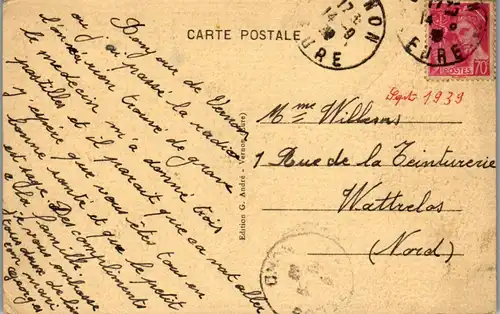 CARTE POSTALE
Bonjour de Vernon
ou j'ai passé la radio
trouvé de grave
le medecin m'a donné trois
pastilles et il parait que ca va aller
j'espère que vous êtes tous en
bonne santé et que le petit
est sage Des compliments
a la famille
Edition G. André - Vernon (Eure)
NON
EURE
14-9
EURE
POSTES
70c
Sept 1939
Mme Willems
1 Rue de la Teinturerie
Wattrelos
(Nord)